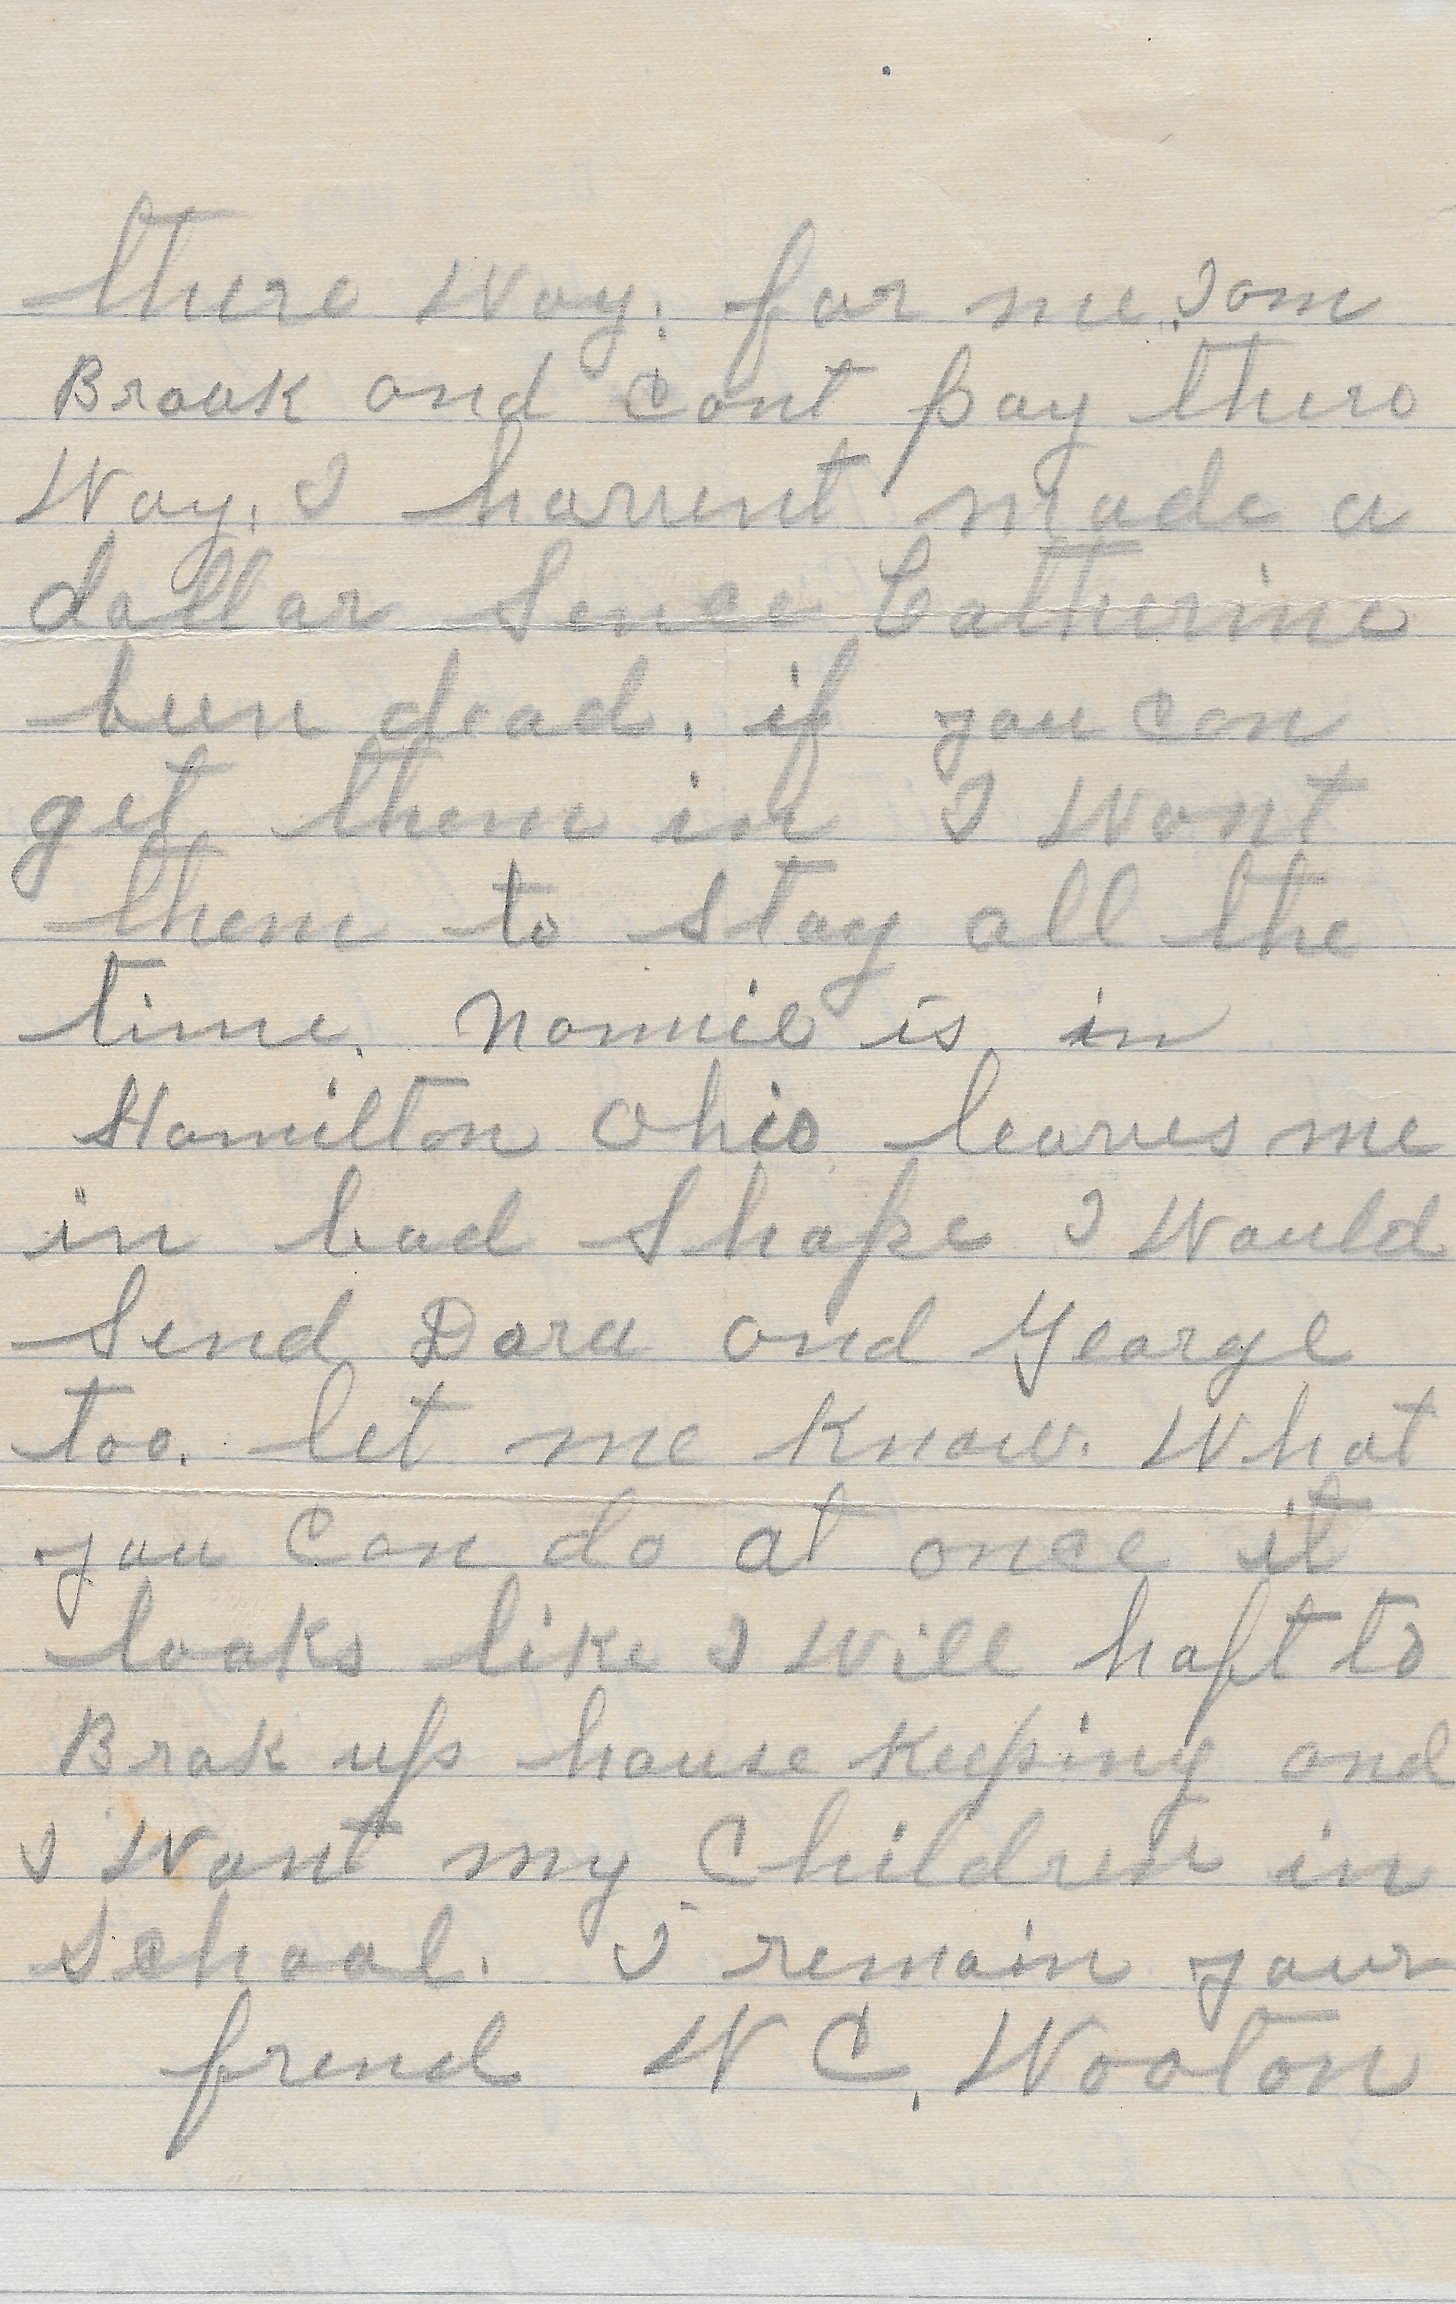 there Way. for me. I am
Brouk and cant pay there
Way. I havent made a
dollar Sence Catherine
bun dead. if you can
get them in I Want
them to stay all the
time. Nannie is in
Hamilton Ohio leaves me
in bad Shape I Would
Send Dora and George
too. let me know. What
you Can do at once it
looks like I Will haft to
Brak up house keeping and
I Want my Children in
School. I remain your
frend W C. Wooton